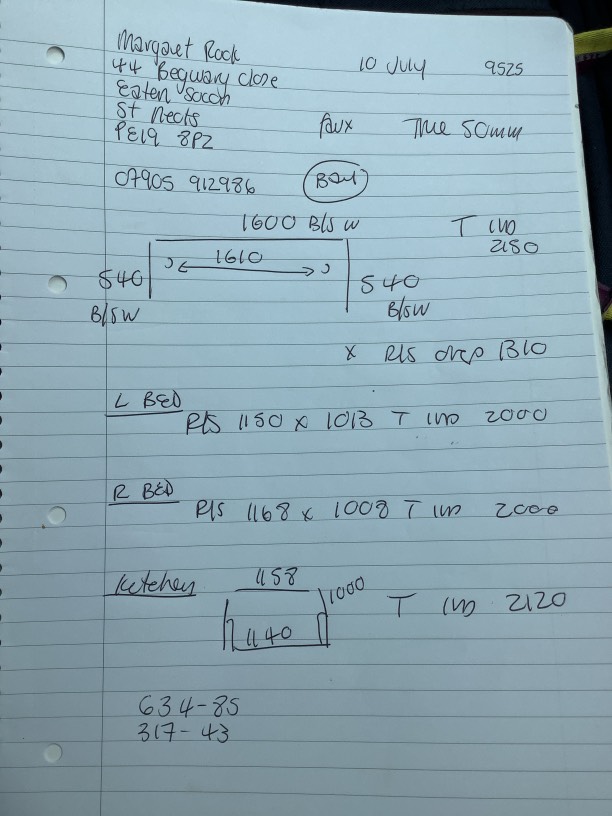 Margaret Rock
10 July 9525
44 Begwary Close
Eaton Socon
St Neots
PE19 8PZ
faux True 50mm
07905 912986
Bay
1600 B/s W
T
2150
1610
540
B/sW
540
B/sW
x R/s drop 1310
L BED
R/S 1150 x 1013 T 2000
R BED
R/s 1168 x 1008 T 2000
Kitchen
1158
1000
1140
T 2120
634-85
317-43